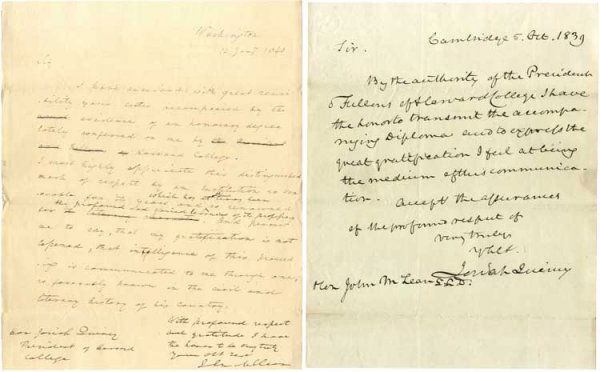 Washington
Sir
I have received with great sensi-
bility your letter accompanied by the
evidence of an honorary degree
lately conferred on me by
Harvard College.
I most highly appreciate this distinguished
mark of respect by an Institution so ven-
erable for its years,
the profound and varied learning of its professors
And permit
me to say, that my gratification is not
lessened, that intelligence of this proceed-
ing is communicated to me through one,
so favorably known in the civil and
literary history of his country.
With profound respect
and gratitude I have
the honor to be very truly
Your obt
John McLean
Hon Josiah Quincy
President of Harvard
College
Cambridge 5. Oct. 1839
Sir.
By the authority of the President
& Fellows of Harvard College I have
the honor to transmit the accompa-
nying Diploma and to express the
great gratification I feel at being
the medium of this communica-
tion.
Accept the assurances
of the profound respect of
Very truly
Josiah Quincy
Hon John McLean L.L.D.